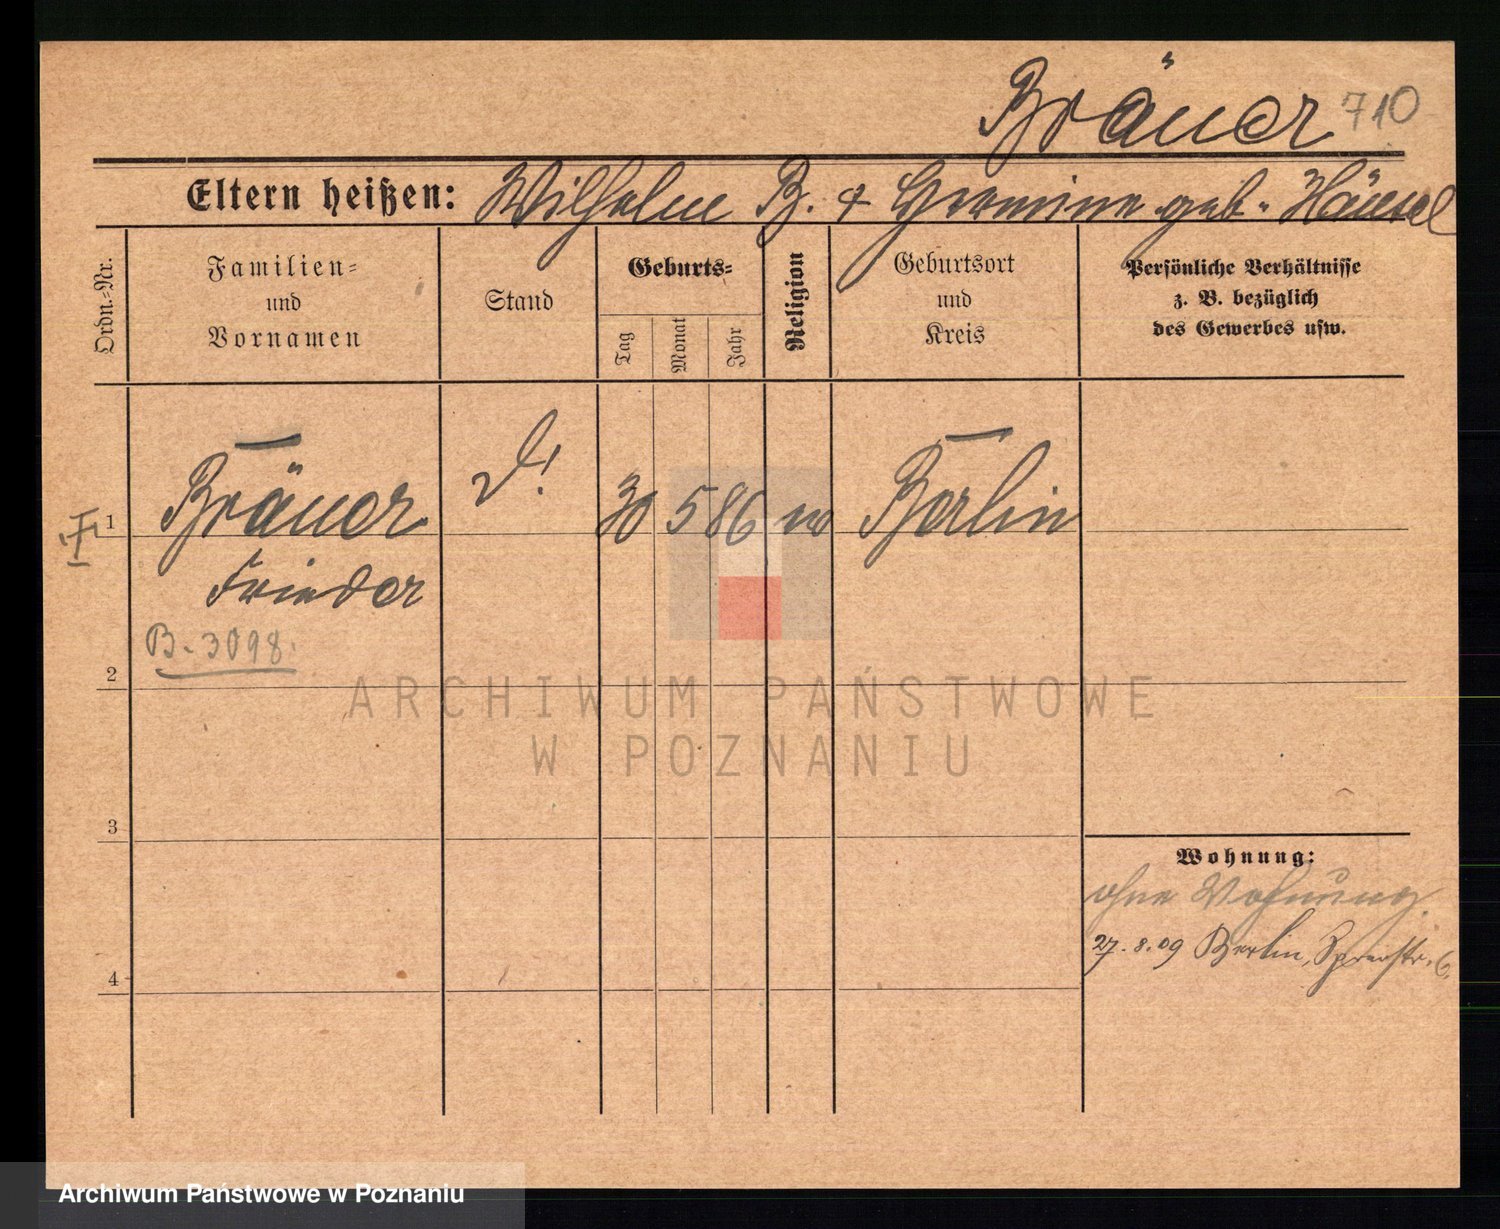 Bräuer 710
Eltern heißen: Wilhelm B. & Hermine geb. Hänsel
Ordn.-Nr.
Familien-
und
Vornamen
Stand
Geburts-
Tag
Monat
Jahr
Religion
Geburtsort
und
Kreis
Persönliche Verhältnisse
z. B. bezüglich
des Gewerbes usw.
1 Bräuer 30 5 86 Berlin
Frieder
B. 3098.
2
3
4
Wohnung:
ohne Wohnung.
27.8.09 Berlin, Spreestr. 6.
ARCHIWUM PAŃSTWOWE
W POZNANIU
Archiwum Państwowe w Poznaniu